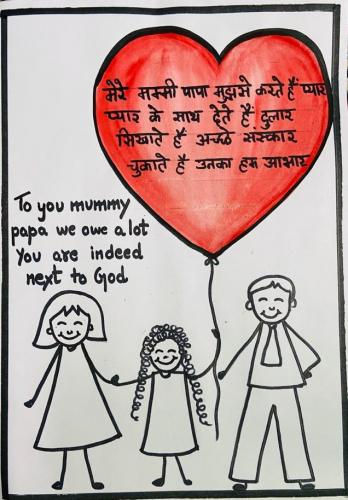 मेरे मम्मी पापा मुझसे करते हैं प्यार
प्यार के साथ देते हैं दुलार
सिखाते है अच्छे संस्कार
चुकाते है उनका हम आभार
To you mummy
papa we owe a lot
You are indeed
next to God